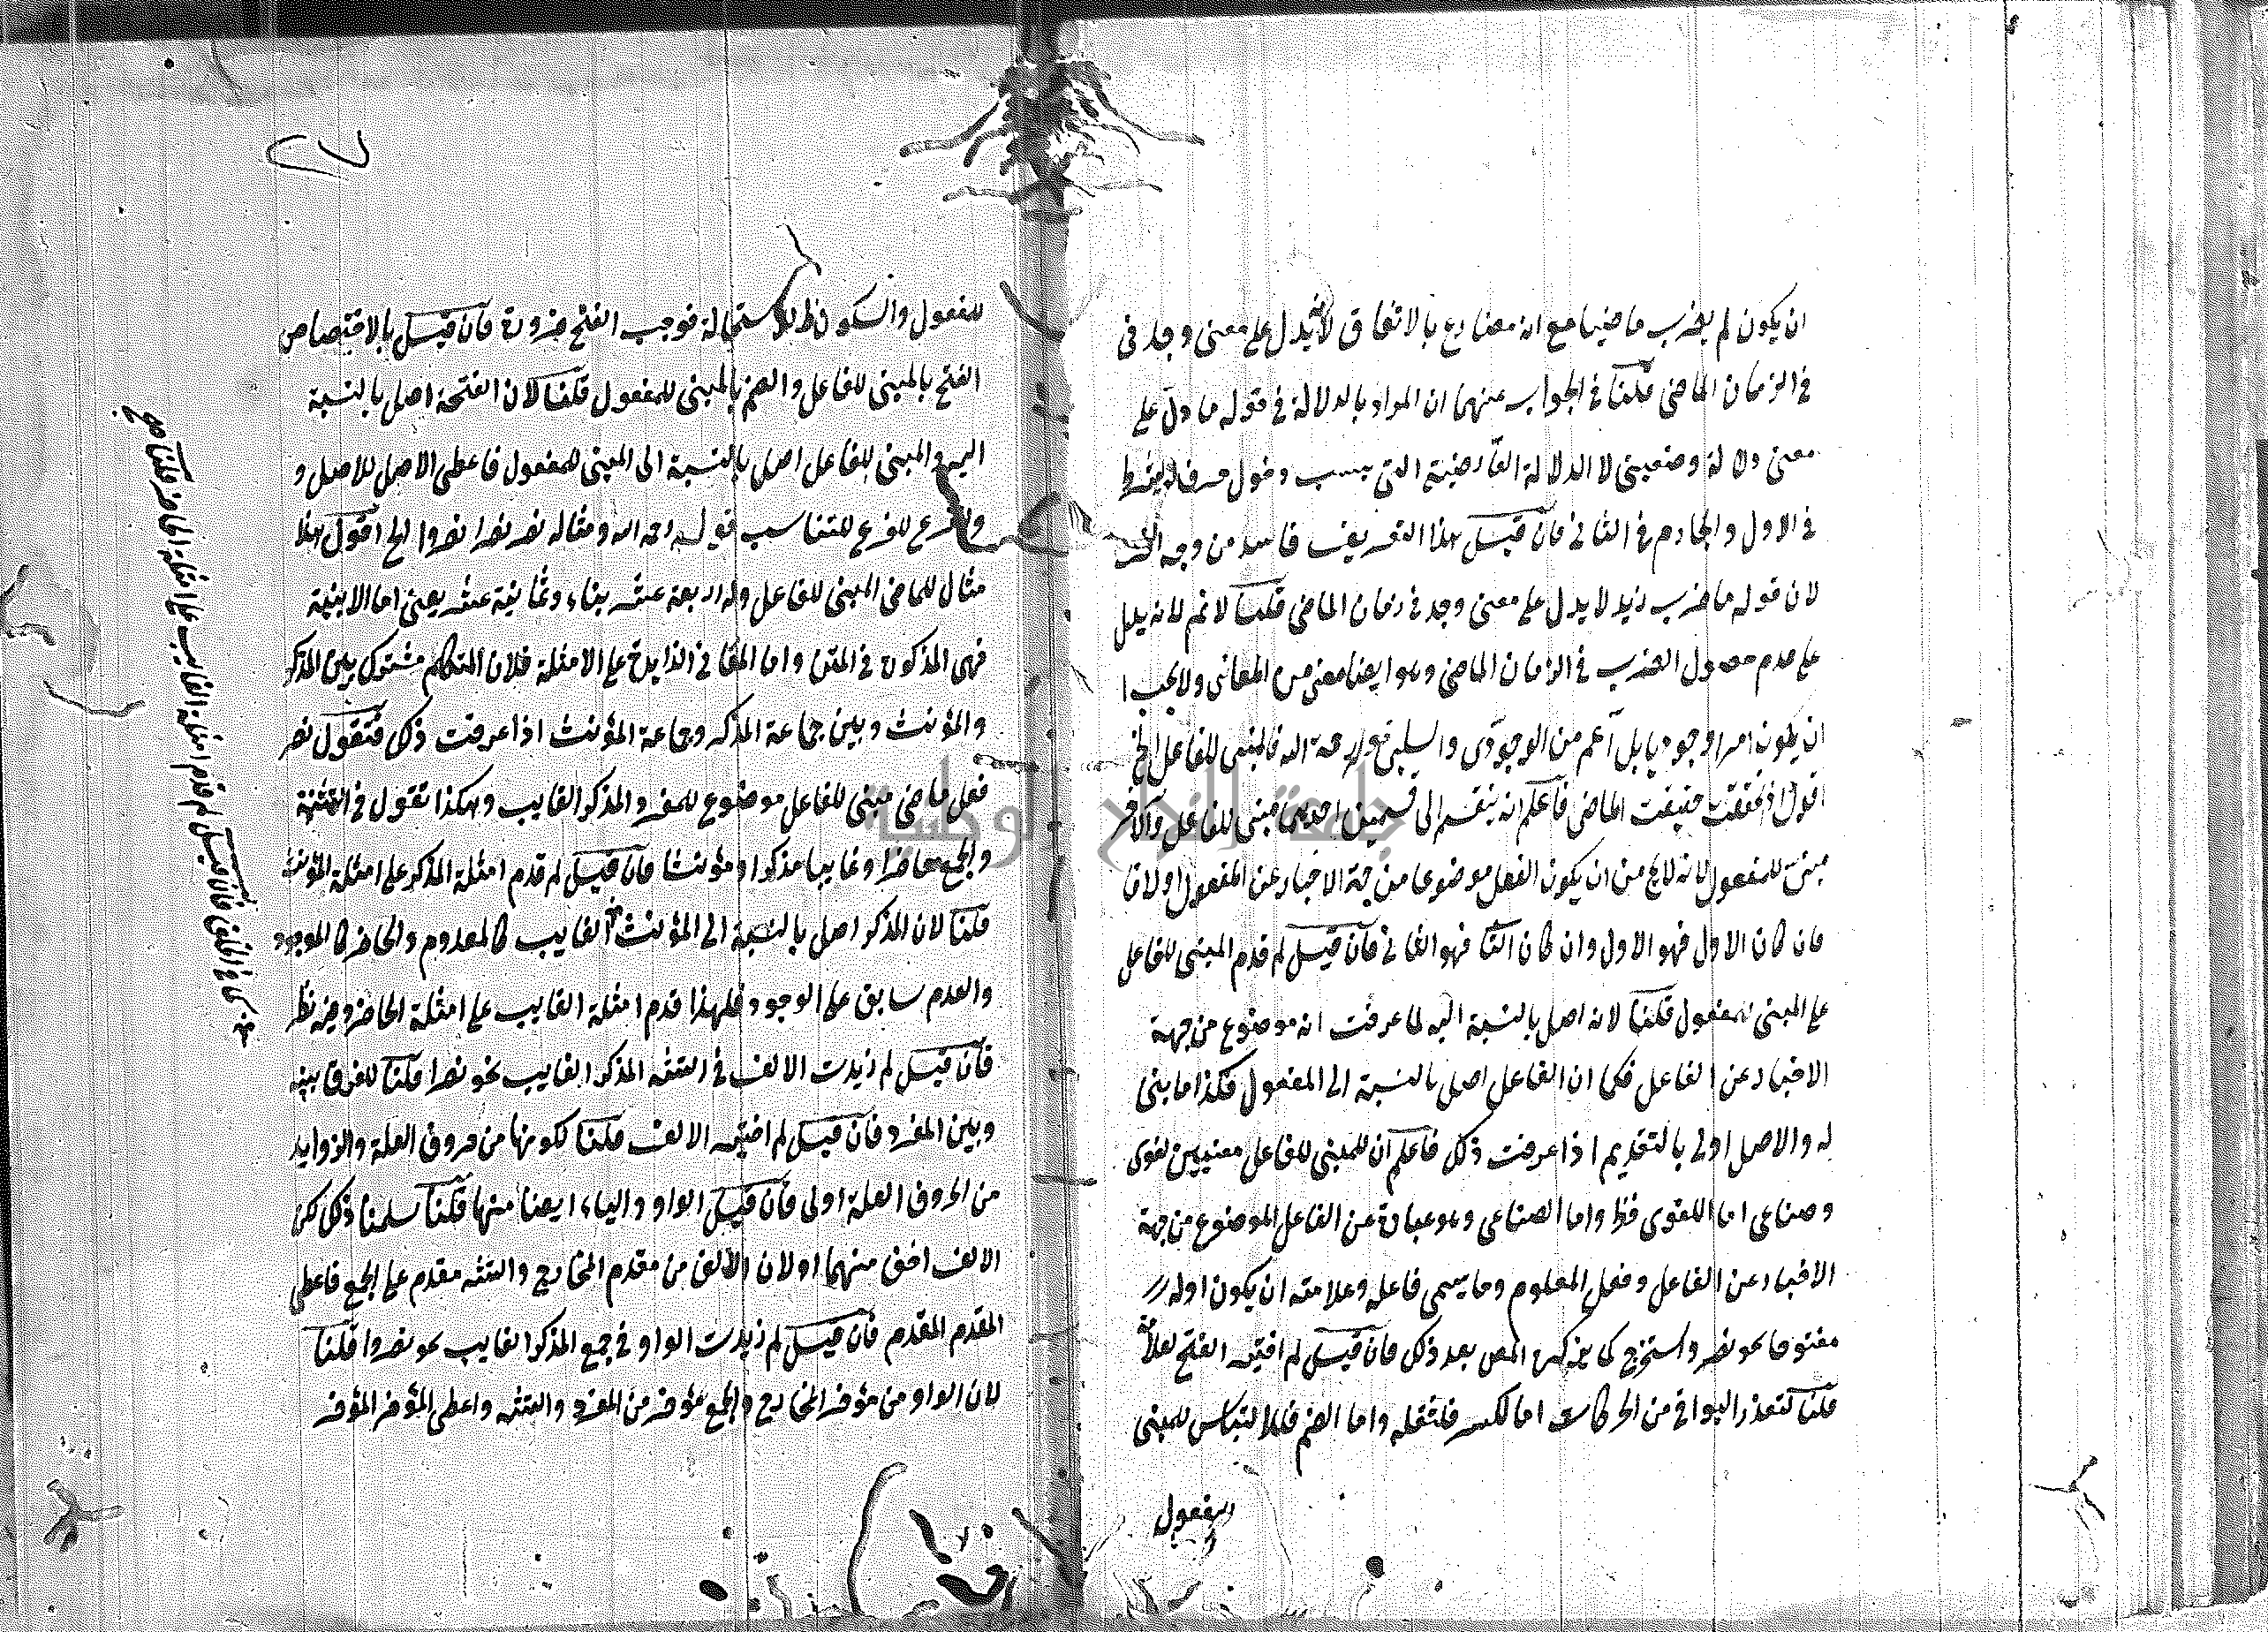 ان يكون لم يضرب ماضيا مع انه مضارع بالاتفاق لانه يدل على معنى وجد فى
فى الزمان الماضى قلنا فى الجواب عنهما ان المراد بالدلالة فى قوله ما دل على
معنى دلالة وضعية لا الدلالة العارضية التى بسبب دخول حرف
فى الاول والجازم فى الثانى فان قيل هذا التعريف فاسد من وجه
لان قوله ما ضرب زيد لا يدل على معنى وجد فى زمان الماضى قلنا لا نم لانه يدل
على عدم حصول الضرب فى الزمان الماضى وهو ايضا معنى من المعانى ولا يجب
ان يكون امرا وجوديا بل اعم من الوجودى والسلبى رحمة الله فالمبنى للفاعل الخ
اقول اذا تحققت حقيقت الماضى فاعلم انه ينقسم الى قسمين احدهما مبنى للفاعل والآخر
مبنى للمفعول لانه لا يخ من ان يكون الفعل موضوعا من جهة الاخبار عن المفعول او لا فا
فان كان الاول فهو الاول وان كان الثا فهو الثانى فان قيل لم قدم المبنى للفاعل
على المبنى للمفعول قلنا لانه اصل بالنسبة اليه لما عرفت انه موضوع من جهة
الاخبار عن الفاعل فكما ان الفاعل اصل بالنسبة الى المفعول فكذا ما بنى
له والاصل اولى بالتقديم اذا عرفت ذلك فاعلم ان للمبنى للفاعل معنيين لغوى
وصناعى اما اللغوى فظ واما الصناعى وهو عبارة عن الفاعل الموضوع من جهة
الاخبار عن الفاعل وفعل المعلوم وما يسمى فاعله وعلامته ان يكون اوله
مفتوحا نحو نصر واستخرج كما يذكره المص بعد ذلك فان قيل لم اختير الفتح
قلنا لتعذر البواقى من الحركات اما الكسر فلثقله واما الضم فللالتباس للمبنى
للمفعول
للمفعول والسكون ظ للاستحالة فوجب الفتح ضرورة فان قيل بالاختصاص
الفتح بالمبنى للفاعل والضم بالمبنى للمفعول قلنا لان الفتحة اصل بالنسبة
اليه والمبنى للفاعل اصل بالنسبة الى المبنى للمفعول فاعطى الاصل للاصل و
والفرع للفرع للتناسب قوله رحمه الله ومثاله نصر نصرا نصروا الخ اقول هذا
مثال للماضى المبنى للفاعل وله اربعة عشر بناء وثمانية عشر يعنى اما الابنية
فهى المذكورة فى المتن واما الثمانى الزايدة على الامثلة فلان المتكلم مشترك بين المذكر
والمؤنث وبين جماعة المذكر وجماعة المؤنث اذا عرفت ذلك فنقول نصر
فعل ماضى مبنى للفاعل موضوع للمفرد المذكر الغايب وهكذا تقول فى التثنية
والجمع حاضرا وغايبا مذكرا او مؤنثا فان قيل لم قدم امثلة المذكر على امثلة المؤنث
قلنا لان المذكر اصل بالنسبة الى المؤنث الغايب كالمعدوم والحاضر كالموجود
والعدم سابق على الوجود فلهذا قدم امثلة الغايب على امثلة الحاضر وفيه نظر
فان قيل لم زيدت الالف فى التثنيه المذكر الغايب نحو نصرا قلنا للفرق بينه
وبين المفرد فان قيل لم اختير الالف قلنا لكونها من حروف العلة والزوايد
من الحروف العلة اولى فان قيل الواو والياء ايضا منها قلنا سلمنا ذلك لكن
الالف اخف منهما او لان الالف من مقدم المخارج والتثنيه مقدم على الجمع فاعطى
المقدم المقدم فان قيل لم زيدت الواو فى جمع المذكر الغايب نحو نصروا قلنا
لان الواو من مؤخر المخارج والجمع مؤخر من المفرد والتثنيه واعطى المؤخر المؤخر
فان قيل لم قدم امثلة الغايب على امثلة الحاضر قلنا
جامعة النجاح الوطنية